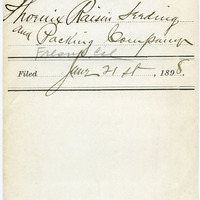 Phoenix Raisin Seeding
and Packing Company
Fresno, Cal
Filed June 21st, 1898.